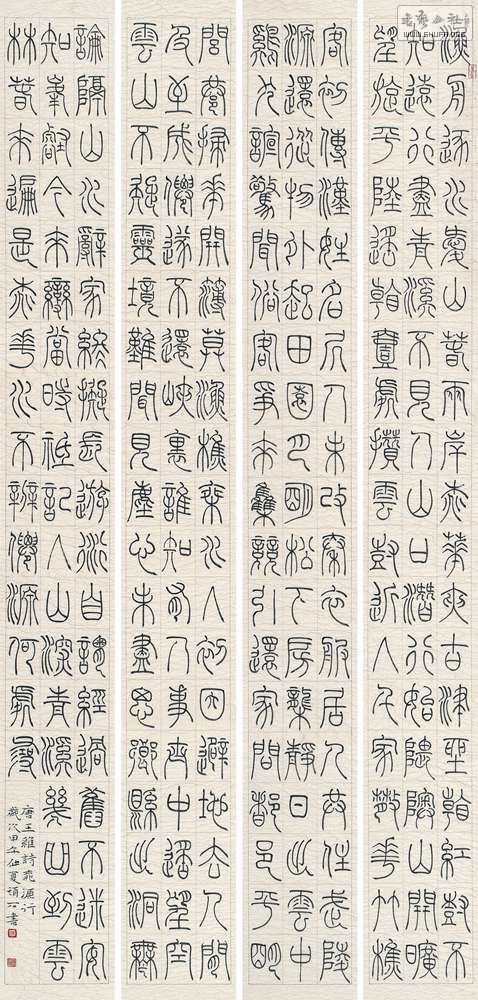 漁舟逐水愛山春兩岸桃華夾古津坐看紅樹不
知遠行盡青溪不見人山口潛行始隈隩山開曠
望旋平陸遙看一處攢雲樹近入千家散華竹樵
客初傳漢姓名居人未改秦衣服居人共住武陵
源還從物外起田園月明松下房櫳靜日出雲中
雞犬喧驚聞俗客爭來集競引還家問都邑平明
閭巷掃華開薄暮漁樵乘水入初因避地去人間
及至成僊遂不還峽裏誰知有人事世中遙望空
雲山不疑靈境難聞見塵心未盡思鄉縣出洞無
論隔山水辭家終擬長遊衍自謂經過舊不迷安
知峯壑今來變當時祇記入山深青溪幾曲到雲
林春來遍是桃華水不辨僊源何處尋
唐王維詩桃源行
歲次甲午仲夏石書
书艺公社
WWW.SHUFA.ORG